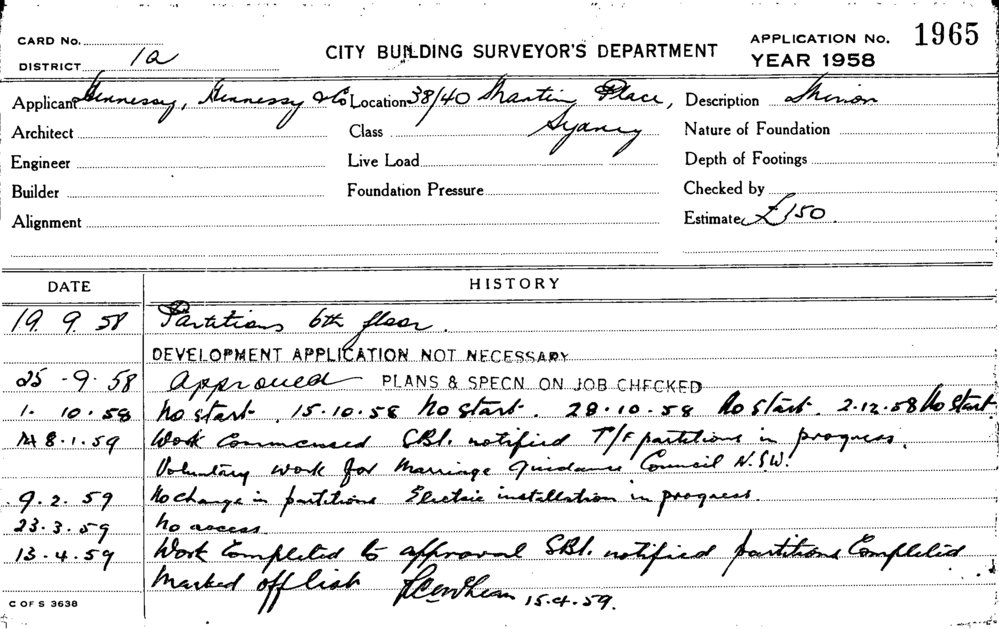 CARD No.
DISTRICT 1a
CITY BUILDING SURVEYOR'S DEPARTMENT
APPLICATION No. 1965
YEAR 1958
Applicant Hennessy, Hennessy & Co Location 38/40 Martin Place, Sydney Description Minor
Architect Class Nature of Foundation
Engineer Live Load Depth of Footings
Builder Foundation Pressure Checked by
Alignment Estimate £150.
DATE HISTORY
19. 9. 58 Partitions 6th floor.
DEVELOPMENT APPLICATION NOT NECESSARY
25 - 9. 58 Approved PLANS & SPECN ON JOB CHECKED
1. 10. 58 No start. 15.10.58 No start. 28.10.58 No start. 2.12.58 No start
8.1.59 Work Commenced SBI. notified T/F partitions in progress.
Voluntary work for Marriage Guidance Council N.S.W.
9.2.59 No change in partitions Electric installation in progress.
23.3.59 No access.
13.4.59 Work Completed to approval SBI. notified partitions Completed
Marked off list 15.4.59.
C OF S 3638